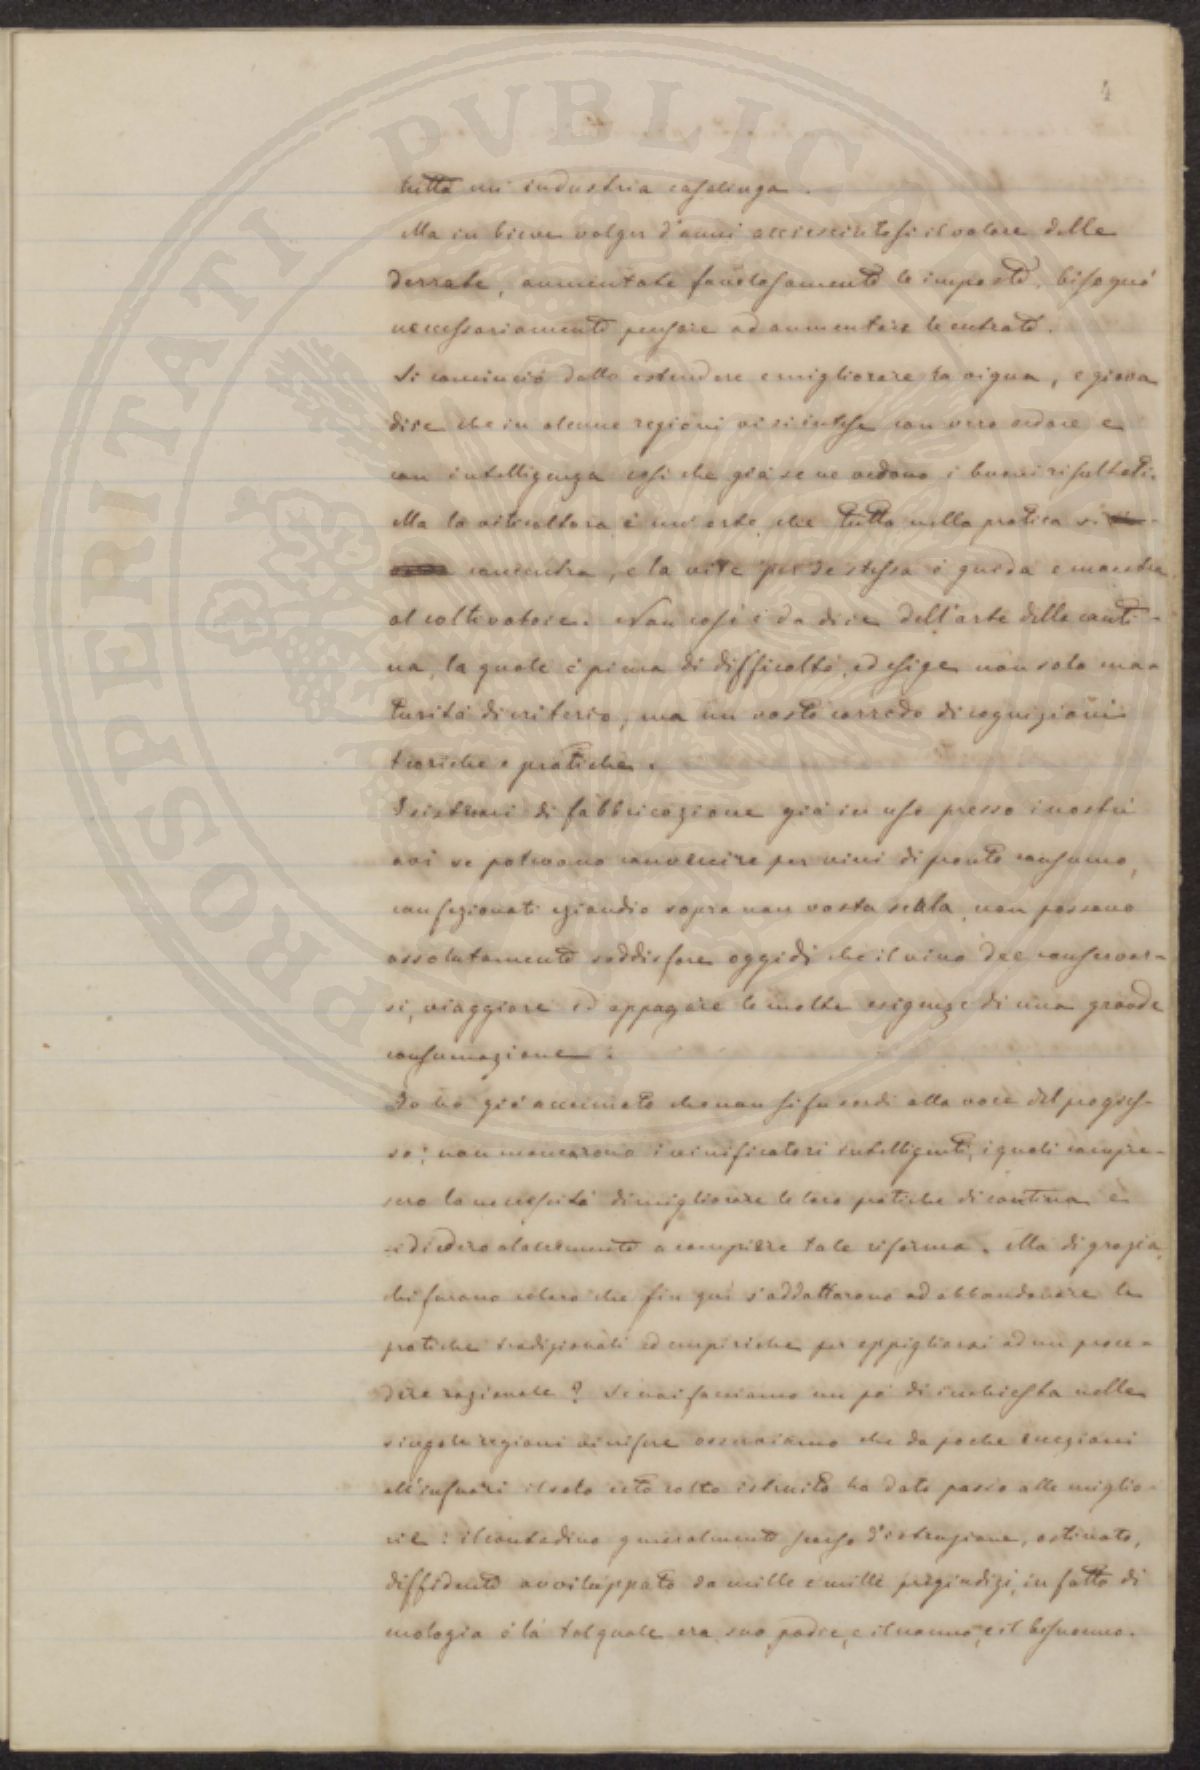 4
tutta un' industria casalinga.
Ma in breve volger d'anni accresciutosi il valore delle
derrate, aumentate favolosamente le imposte, bisognò
necessariamente pensare ad aumentare le entrate.
Si cominciò dallo estendere e migliorare la vigna, e giova
dire che in alcune regioni vi si intese con vero ardore e
con intelligenza così che già se ne vedono i buoni risultati.
Ma la viticoltura è un' arte che tutta nella pratica si
concentra, e la vite per se stessa è guida e maestra
al coltivatore. Non così è da dire dell'arte della canti-
na, la quale è piena di difficoltà, ed esige non solo ma-
turità di criterio, ma un vasto corredo di cognizioni
teoriche e pratiche.
I sistemi di fabbricazione già in uso presso i nostri
avi se potevano convenire per vini di pronto consumo,
confezionati eziandio sopra non vasta scala, non possono
assolutamente soddisfare oggidì che il vino dee conservar-
si, viaggiare ed appagare le molte esigenze di una grande
consumazione.
Io ho già accennato che non si fu sordi alla voce del progres-
so; non mancarono i vinificatori intelligenti, i quali compre-
sero la necessità di migliorare le loro pratiche di cantina e
si diedero alacremente a compiere tale riforma. Ma di grazia,
chi furono coloro che fin qui s'addattarono ad abbandonare le
pratiche tradizionali ed empiriche per appigliarsi ad un proce-
dere razionale? Se noi facciamo un pò di inchiesta nelle
singole regioni vinifere osserviamo che da poche eccezioni
all'infuori il solo ceto colto istruito ha dato passo alle miglio-
rie: il contadino generalmente scarso d'istruzione, ostinato,
diffidente avviluppato da mille e mille pregiudizi, in fatto di
enologia è là tal quale era suo padre, e il nonno, e il bisnonno.
PROSPERITATI PVBLICAE